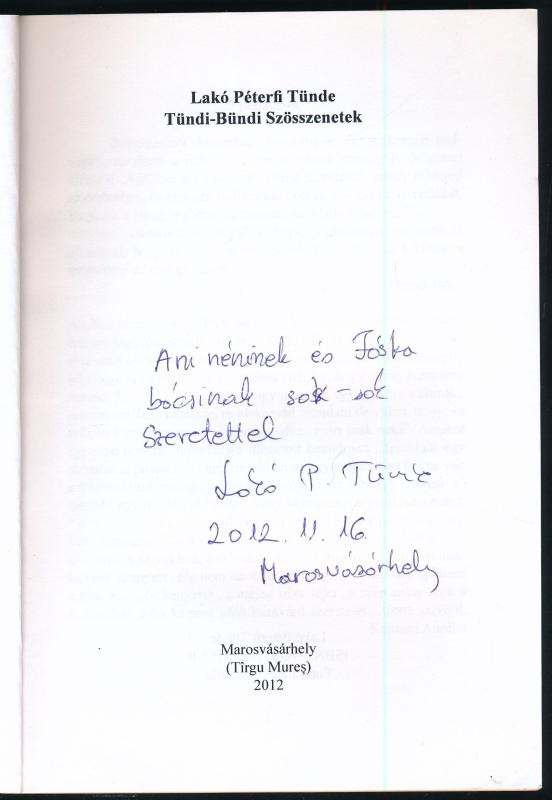 Lakó Péterfi Tünde
Tündi-Bündi Szösszenetek
Ani néninek és Jóska
bácsinak sok-sok
szeretettel
Lakó P. Tünde
2012. 11. 16.
Marosvásárhely
Marosvásárhely
(Tîrgu Mureş)
2012